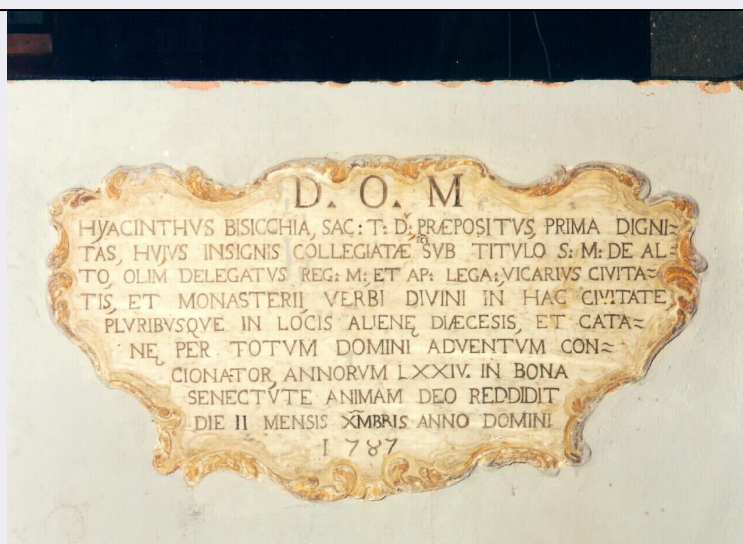 D. O. M
HYACINTHVS BISICCHIA, SAC: T: D: PRÆPOSITVS, PRIMA DIGNI=
TAS, HUJUS INSIGNIS COLLEGIATÆ SVB TITVLO S: M: DE AL=
TO, OLIM DELEGATVS REG: M: ET AP: LEGA: VICARIVS CIVITA=
TIS, ET MONASTERII VERBI DIVINI IN HAC CIVITATE
PLVRIBVSQVE IN LOCIS ALIENĘ DIÆCESIS, ET CATA=
NĘ PER TOTVM DOMINI ADVENTVM CON=
CIONATOR, ANNORVM LXXIV. IN BONA
SENECTVTE ANIMAM DEO REDDIDIT
DIE II MENSIS X̃MBRIS ANNO DOMINI
1787